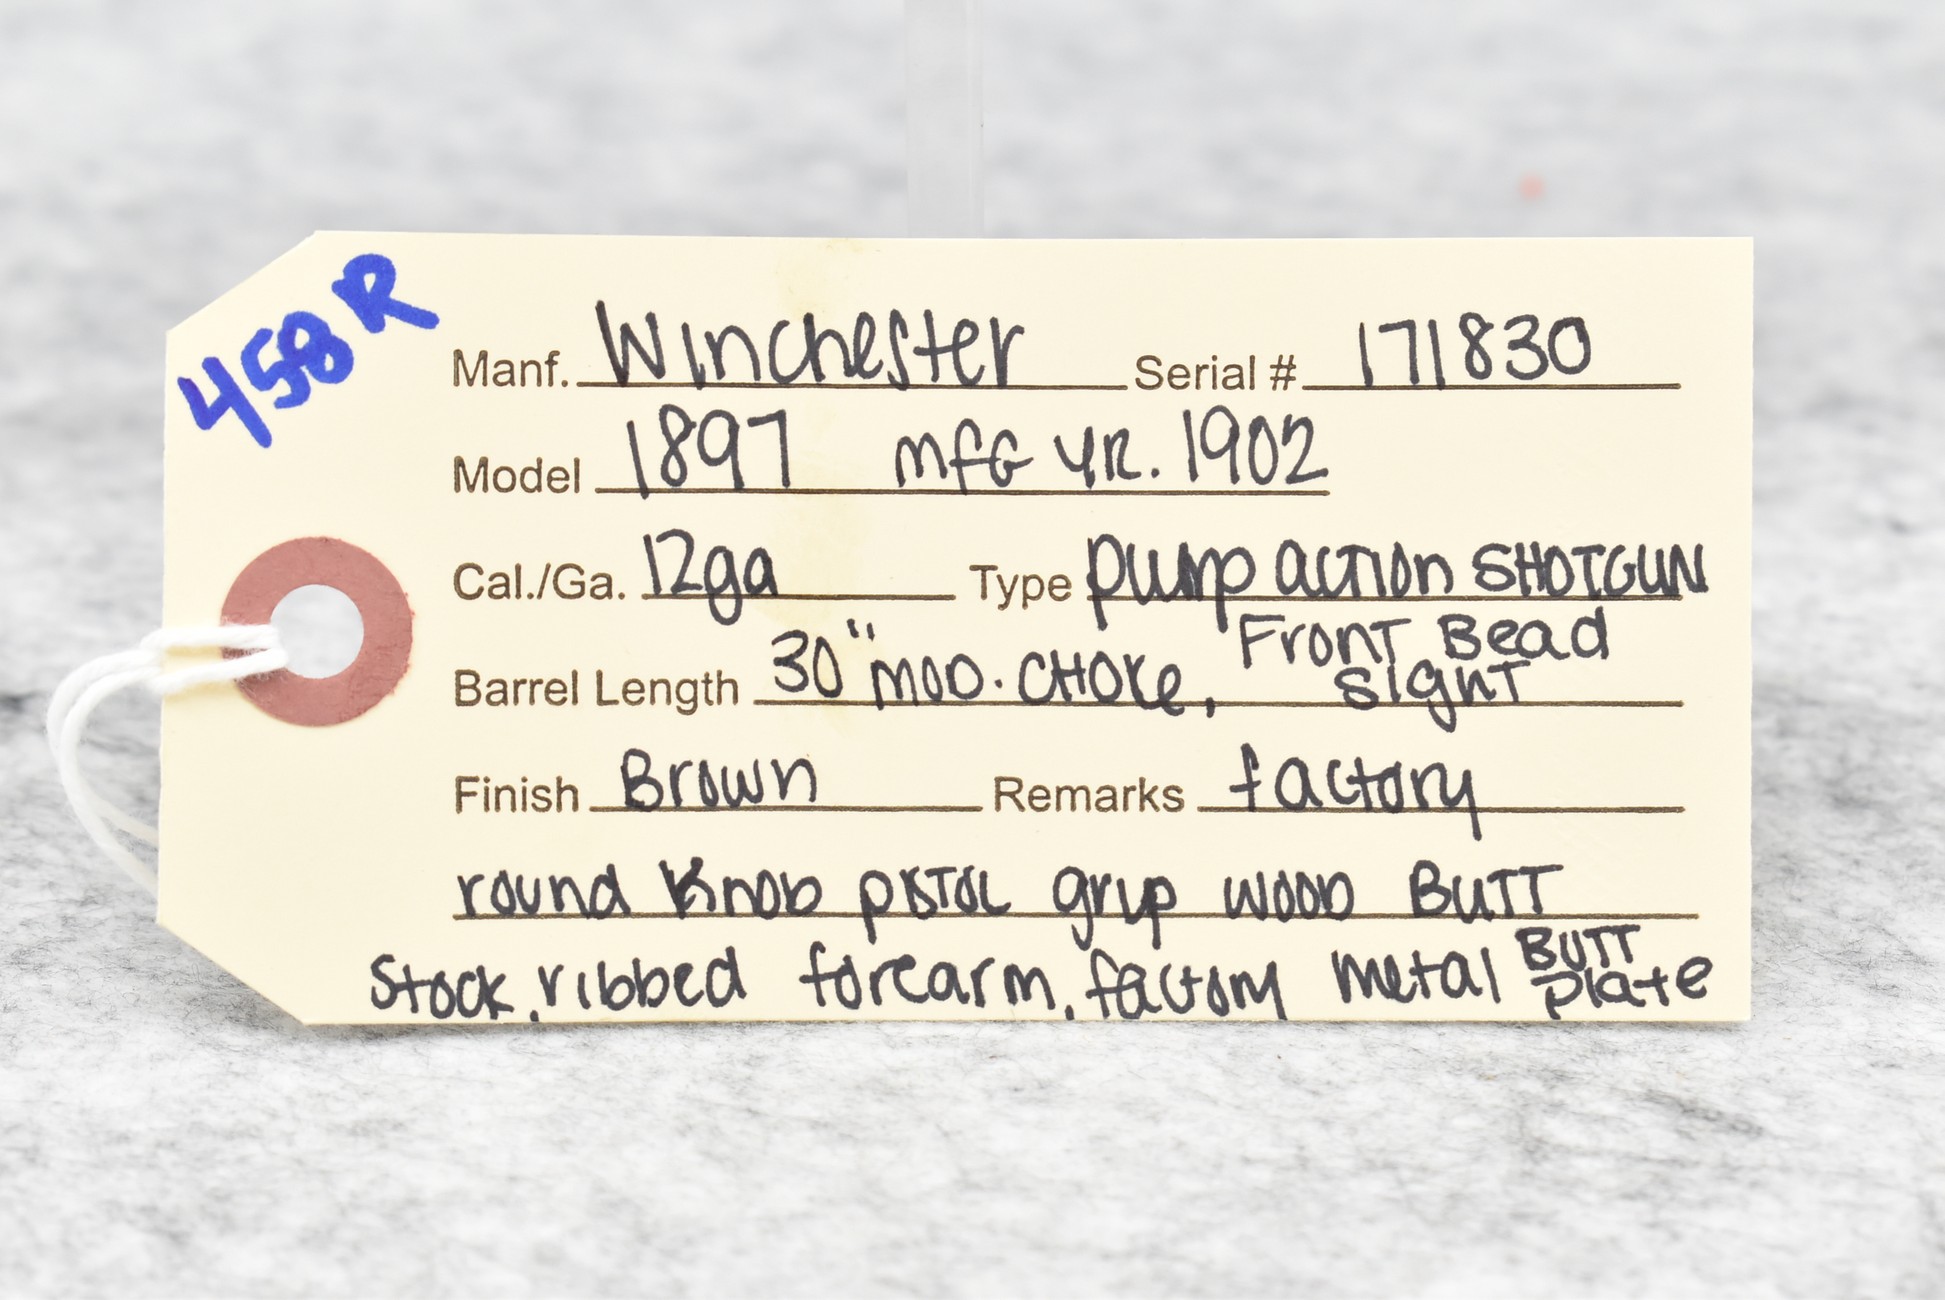 458R
Manf. Winchester Serial # 171830
Model 1897 mfG YR. 1902
Cal./Ga. 12ga Type pump action SHOTGUN
Barrel Length 30" MOD. CHOKe, Front Bead sight
Finish Brown Remarks factory
round Knob pISTOL grip WOOD BUTT
Stock, ribbed forearm, factory metal BUTT plate